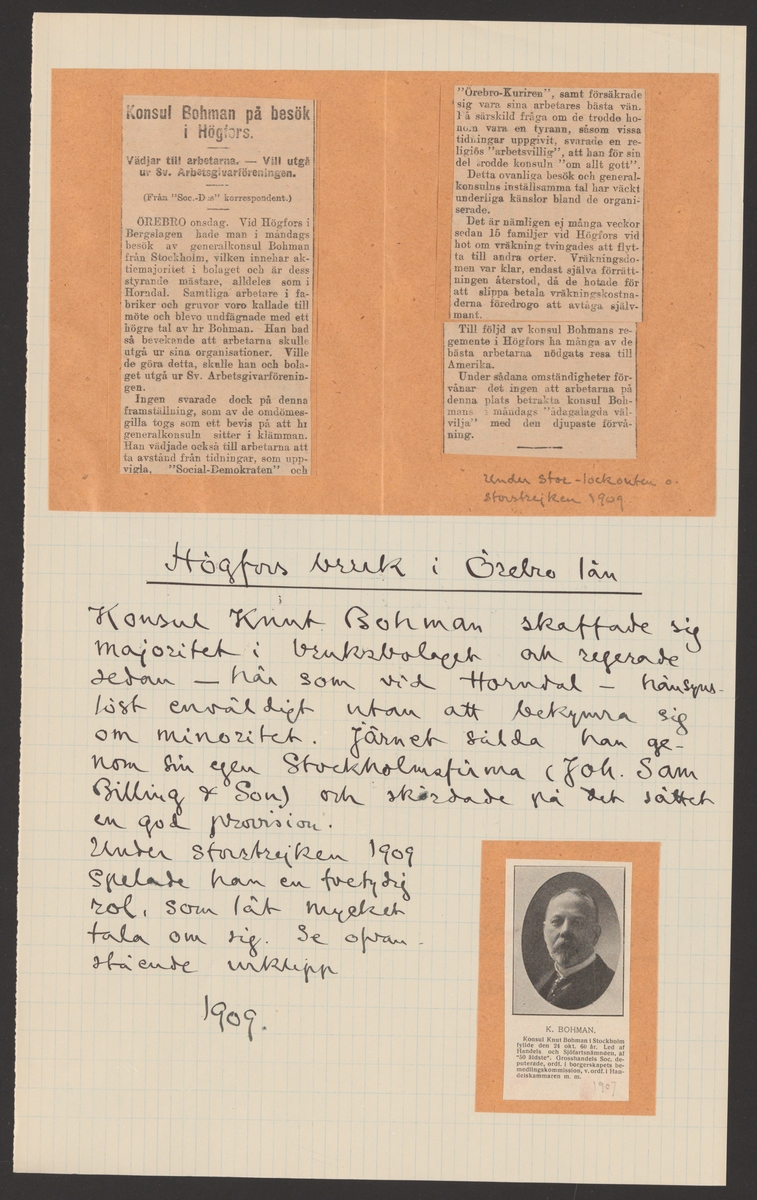 Konsul Bohman på besök
i Högfors.
Vädjar till arbetarna. — Vill utgå
ur Sv. Arbetsgivarföreningen.
(Från "Soc.-D:s" korrespondent.)
ÖREBRO onsdag. Vid Högfors i
Bergslagen hade man i måndags
besök av generalkonsul Bohman
från Stockholm, vilken innehar ak-
tiemajoritet i bolaget och är dess
styrande mästare, alldeles som i
Horndal. Samtliga arbetare i fa-
briker och gruvor voro kallade till
möte och blevo undfägnade med ett
högre tal av hr Bohman. Han bad
så bevekande att arbetarna skulle
utgå ur sina organisationer. Ville
de göra detta, skulle han och bola-
get utgå ur Sv. Arbetsgivarförenin-
gen.
Ingen svarade dock på denna
framställning, som av de omdömes-
gilla togs som ett bevis på att hr
generalkonsuln sitter i klämman.
Han vädjade också till arbetarna att
ta avstånd från tidningar, som upp-
vigla, "Social-Demokraten" och
"Örebro-Kuriren", samt försäkrade
sig vara sina arbetares bästa vän.
På särskild fråga om de trodde ho-
nom vara en tyrann, såsom vissa
tidningar uppgivit, svarade en re-
ligiös "arbetsvillig", att han för sin
del trodde konsuln "om allt gott".
Detta ovanliga besök och general-
konsulns inställsamma tal har väckt
underliga känslor bland de organi-
serade.
Det är nämligen ej många veckor
sedan 15 familjer vid Högfors vid
hot om vräkning tvingades att flyt-
ta till andra orter. Vräkningsdo-
men var klar, endast själva förrätt-
ningen återstod, då de hotade för
att slippa betala vräkningskostna-
derna föredrogo att avtåga själv-
mant.
Till följd av konsul Bohmans re-
gemente i Högfors ha många av de
bästa arbetarna nödgats resa till
Amerika.
Under sådana omständigheter för-
vånar det ingen att arbetarna på
denna plats betrakta konsul Boh-
mans i måndags "ådagalagda väl-
vilja" med den djupaste förvå-
ning.
Under stor-lockouten o.
storstrejken 1909
Högfors bruk i Örebro län
Konsul Knut Bohman skaffade sig
majoritet i bruksbolaget och regerade
sedan — här som vid Horndal — hänsyns-
löst enväldigt utan att bekymra sig
om minoritet. Järnet sålda han ge-
nom sin egen Stockholmsfirma (Joh. Sam
Billing & Son) och skördade på det sättet
en god provision.
Under storstrejken 1909
spelade han en tvetydig
roll, som låt mycket
tala om sig. Se ovan-
stående urklipp
1909.
K. BOHMAN.
Konsul Knut Bohman i Stockholm
fyllde den 24 okt. 60 år. Led af
Handels och Sjöfartsnämnden, af
"50 äldste". Grosshandels Soc. de-
puterade, ordf. i borgerskapets be-
medlingskommission, v. ordf. i Han-
delskammaren m. m.
1907